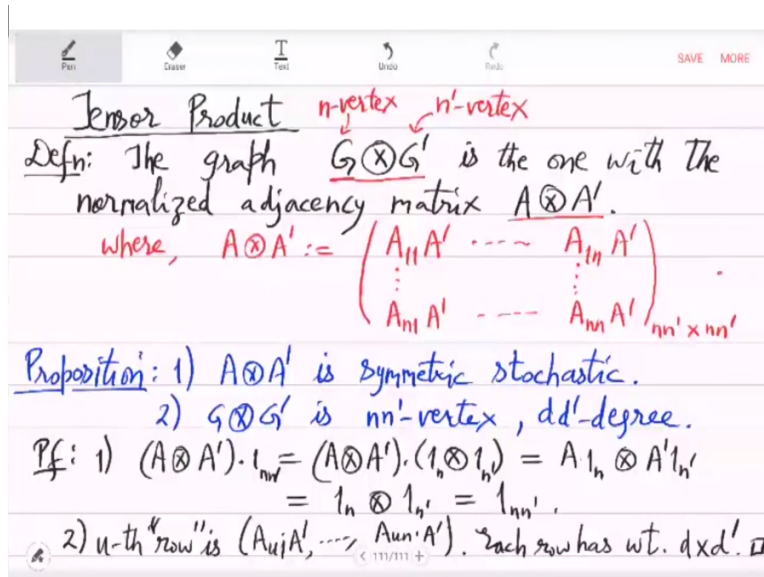 Pen Eraser Text Undo Redo SAVE MORE
Tensor Product n-vertex n'-vertex
Defn: The graph G⊗G' is the one with the
normalized adjacency matrix A⊗A'.
where, A⊗A' := ( A₁₁A' ---- A₁ₙA'
⋮ ⋮
Aₙ₁A' ---- AₙₙA' )ₙₙ'ₓₙₙ'
Proposition: 1) A⊗A' is symmetric stochastic.
2) G⊗G' is nn'-vertex, dd'-degree.
Pf: 1) (A⊗A')·1ₙₙ' = (A⊗A')·(1ₙ⊗1ₙ') = A1ₙ ⊗ A'1ₙ'
= 1ₙ ⊗ 1ₙ' = 1ₙₙ'.
2) u-th "row" is (Aᵤ₁A', ----, Aᵤₙ·A'). Each row has wt. dxd'. □
< 111/111 +